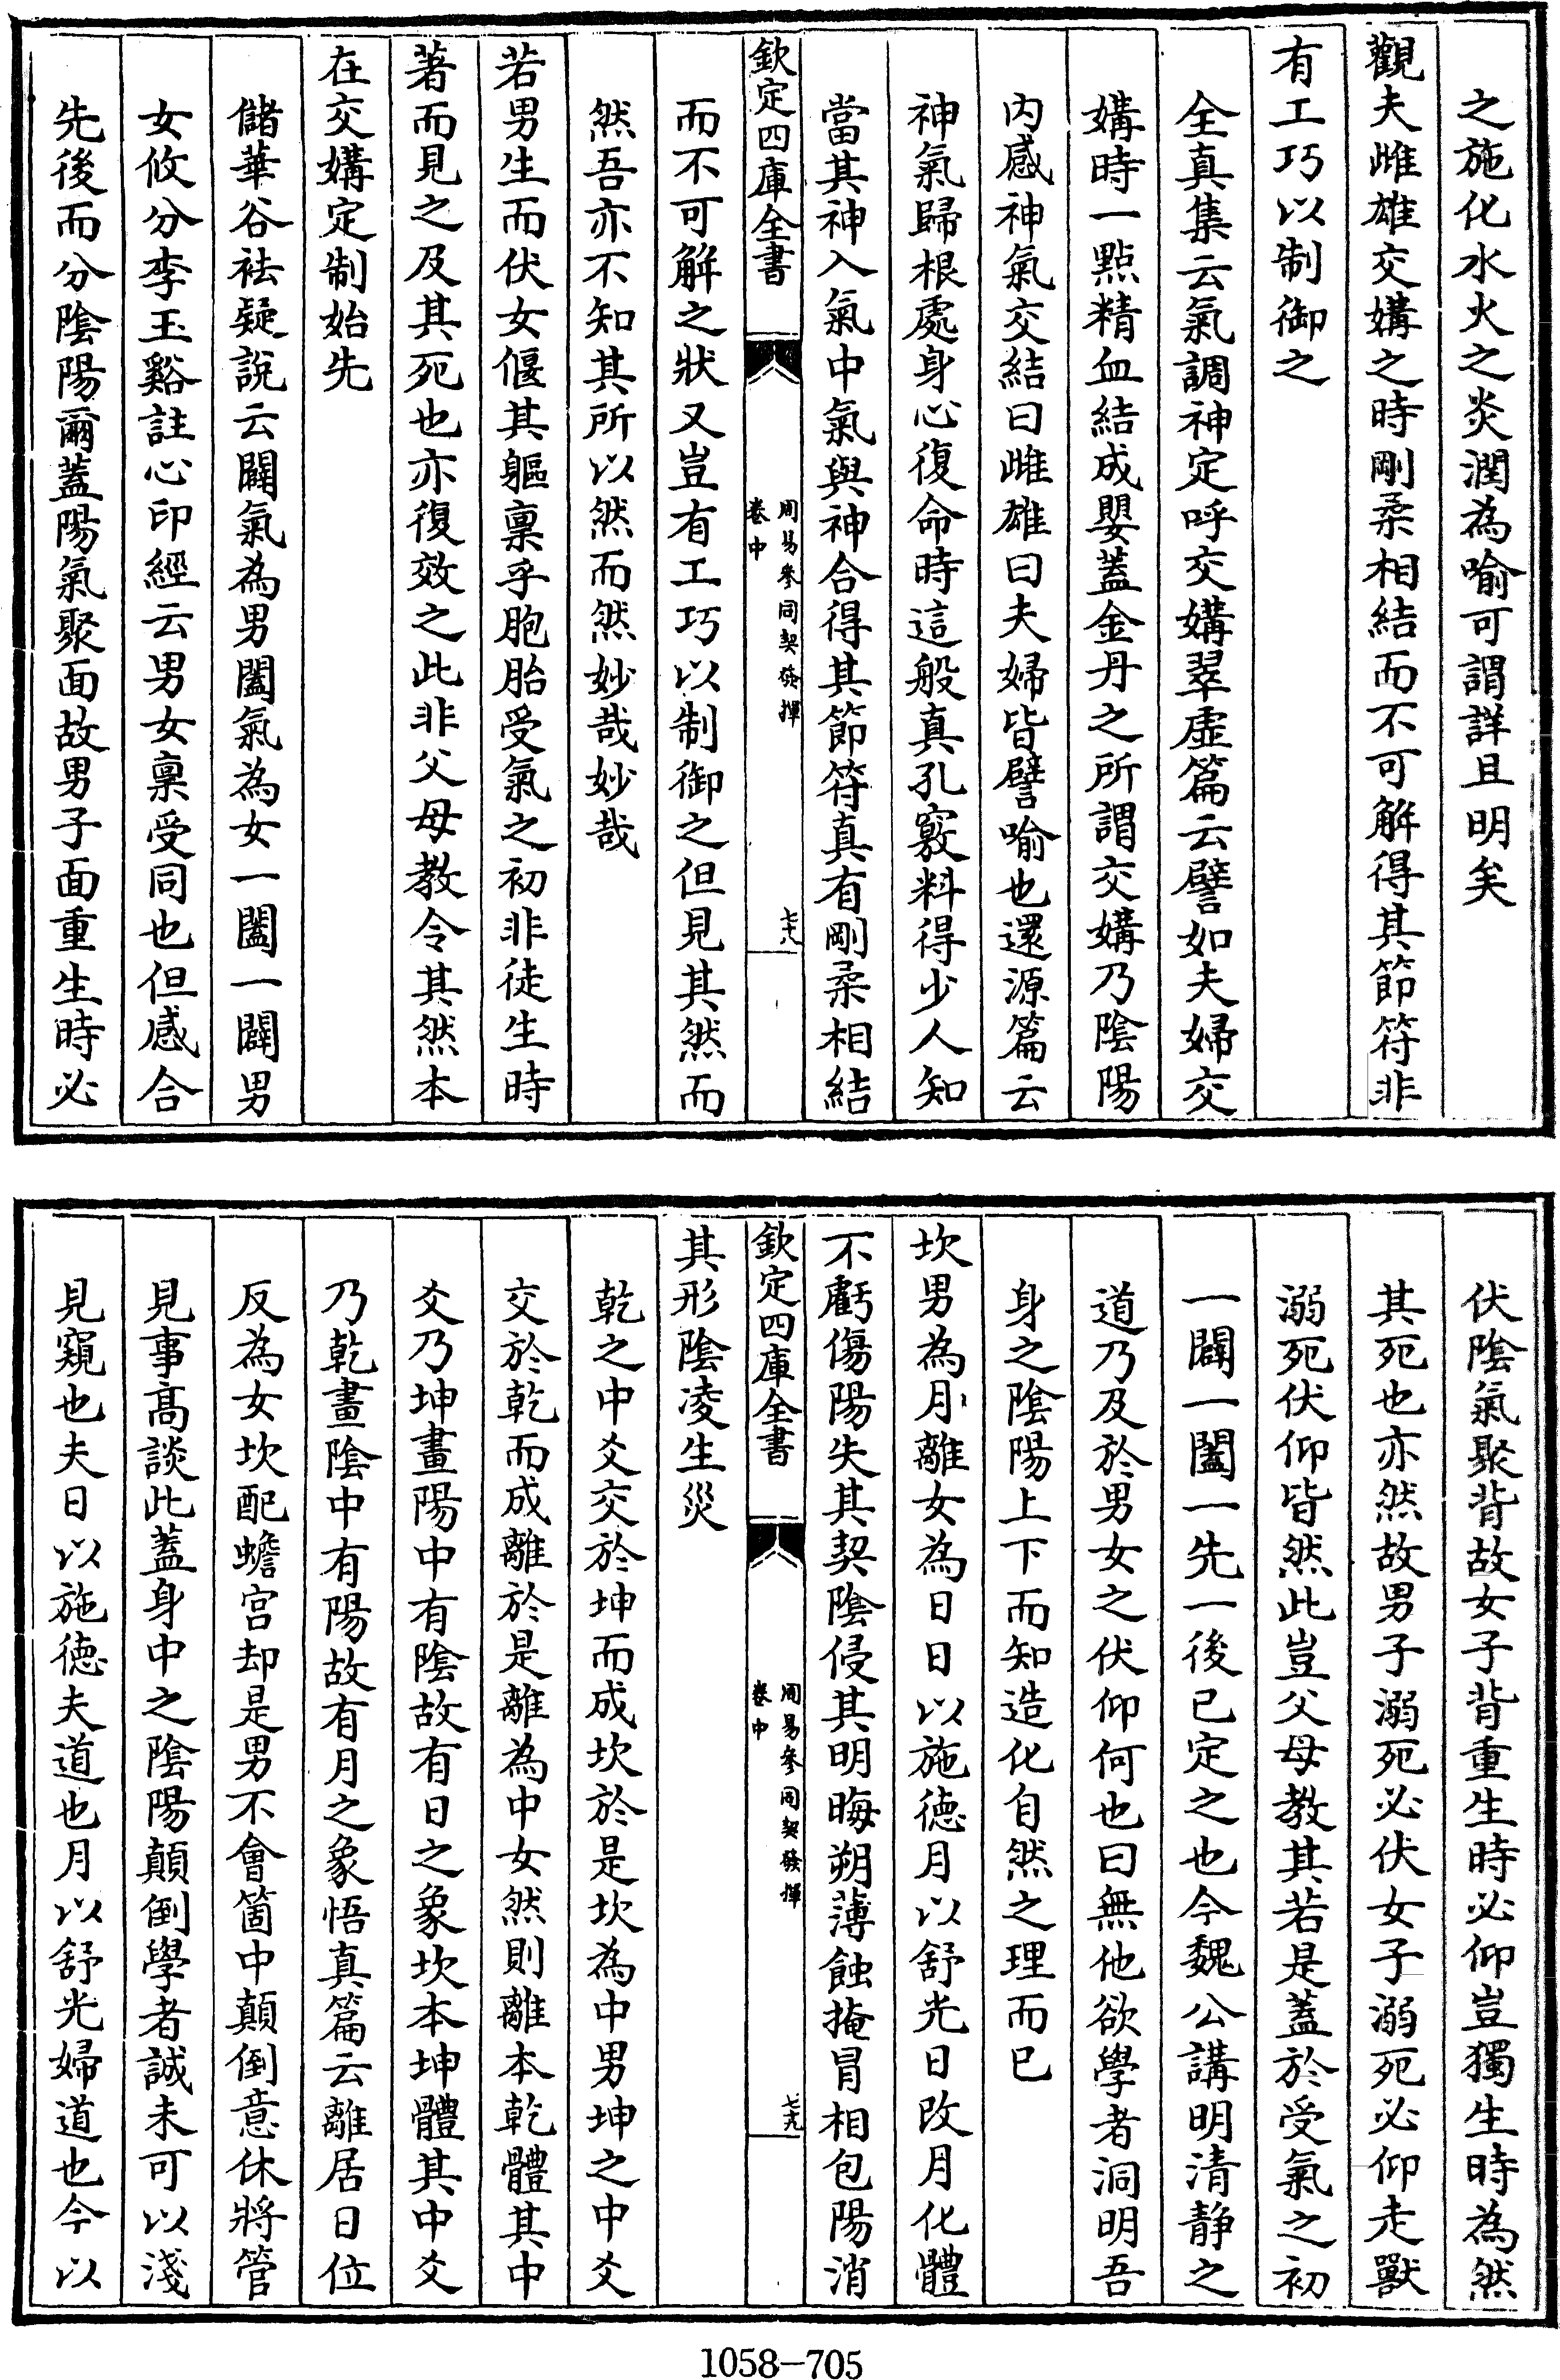 之施化水火之炎潤為喻可謂詳且明矣
觀夫雌雄交媾之時剛柔相結而不可解得其節符非
有工巧以制御之
全真集云氣調神定呼交媾翠虛篇云譬如夫婦交
媾時一點精血結成嬰蓋金丹之所謂交媾乃陰陽
内感神氣交結曰雌雄曰夫婦皆譬喻也還源篇云
神氣歸根處身心復命時這般真孔竅料得少人知
當其神入氣中氣與神合得其節符真有剛柔相結
欽定四庫全書
周易參同契發揮
卷中
七十八
而不可解之狀又豈有工巧以制御之但見其然而
然吾亦不知其所以然而然妙哉妙哉
若男生而伏女偃其軀稟乎胞胎受氣之初非徒生時
著而見之及其死也亦復效之此非父母教令其然本
在交媾定制始先
儲華谷祛疑說云闢氣為男闔氣為女一闔一闢男
女攸分李玉谿註心印經云男女稟受同也但感合
先後而分陰陽爾蓋陽氣聚面故男子面重生時必
伏陰氣聚背故女子背重生時必仰豈獨生時為然
其死也亦然故男子溺死必伏女子溺死必仰走獸
溺死伏仰皆然此豈父母教其若是蓋於受氣之初
一闢一闔一先一後已定之也今魏公講明清静之
道乃及於男女之伏仰何也曰無他欲學者洞明吾
身之陰陽上下而知造化自然之理而已
坎男為月離女為日日以施德月以舒光日改月化體
不虧傷陽失其契陰侵其明晦朔薄蝕掩冒相包陽消
欽定四庫全書
周易參同契發揮
卷中
七十九
其形陰凌生災
乾之中爻交於坤而成坎於是坎為中男坤之中爻
交於乾而成離於是離為中女然則離本乾體其中
爻乃坤畫陽中有陰故有日之象坎本坤體其中爻
乃乾畫陰中有陽故有月之象悟真篇云離居日位
反為女坎配蟾宫却是男不會箇中顛倒意休將管
見事髙談此蓋身中之陰陽顛倒學者誠未可以淺
見窺也夫日以施德夫道也月以舒光婦道也今以
1058-705